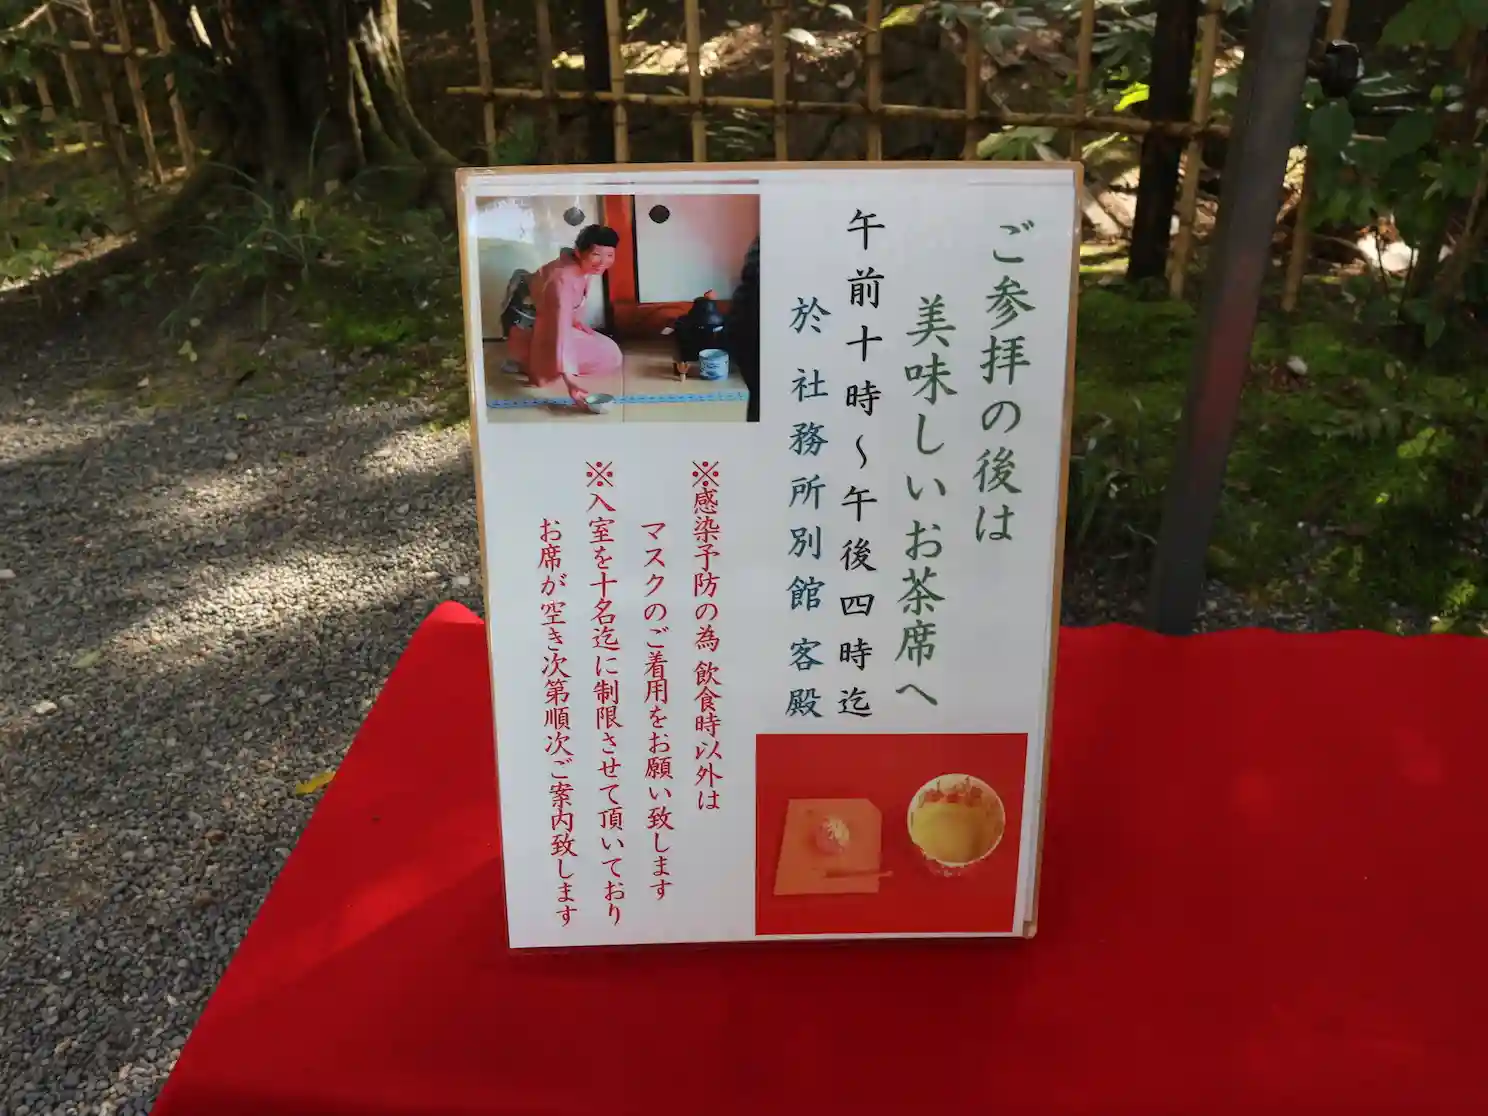 ご参拝の後は
美味しいお茶席へ
午前十時～午後四時迄
於 社務所別館 客殿
※感染予防の為 飲食時以外は
マスクのご着用をお願い致します
※入室を十名迄に制限させて頂いており
お席が空き次第順次ご案内致します